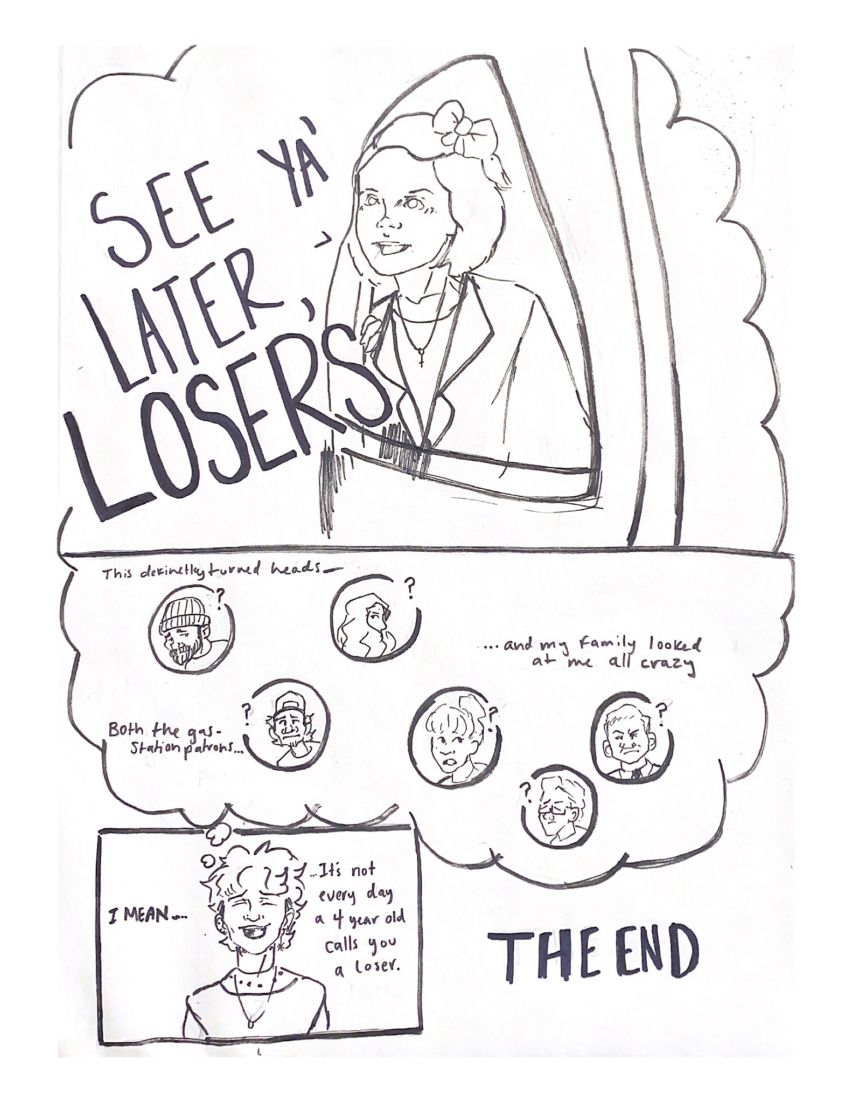 SEE YA'
LATER,
LOSERS
This definetley turned heads—
?
?
...and my family looked
at me all crazy
Both the gas-
station patrons...
?
?
?
?
I MEAN....
...It's not
every day
a 4 year old
calls you
a loser.
THE END